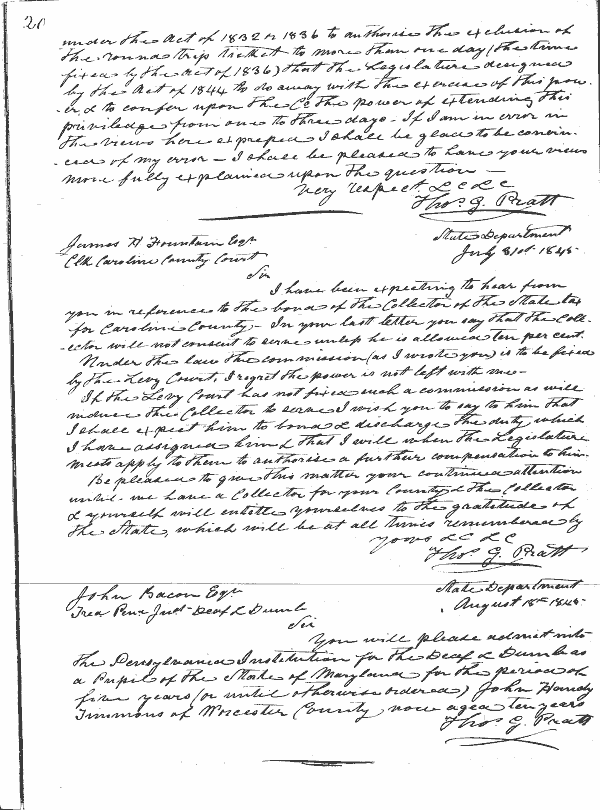 20
under the Act of 1832 or 1836 to authorise the exclusion of
the round trip ticket to more than one day (the time
fixed by the Act of 1836) that the Legislature designed
by the Act of 1844 to do away with the exercise of this pow-
er & to confer upon the Co the power of extending this
priviledge from one to three days. If I am in error in
the views here expressed I shall be glad to be convin-
-ced of my error — I shall be pleased to have your views
more fully explained upon the question —
Very respect &c &c
Thos. G. Pratt
James H Fountain Esqr
Clk Caroline County Court
State Department
July 31st 1845
Sir
I have been expecting to hear from
you in reference to the bond of the Collector of the State tax
for Caroline County. In your last letter you say that the Coll-
-ector will not consent to serve unless he is allowed ten per cent.
Under the law the commission (as I wrote you) is to be fixed
by the Levy Court, I regret the power is not left with me—
If the Levy Court has not fixed such a commission as will
induce the Collector to serve I wish you to say to him that
I shall expect him to bond & discharge the duty which
I have assigned him & that I will when the Legislature
meets apply to them to authorise a further compensation to him.
Be pleased to give this matter your continued attention
until we have a Collector for your County & the Collector
& yourself will entitle yourselves to the gratitude of
the State, which will be at all times remembered by
yours &c &c
Thos. G. Pratt
John Bacon Esqr
Trea Penn Inst Deaf & Dumb
State Department
August 18th 1845
Sir
You will please admit into
the Pensylvania Institution for the Deaf & Dumb as
a Pupil of the State of Maryland for the period of
five years (or until otherwise ordered) John Handy
Timmons of Worcester County now aged ten years
Thos. G. Pratt